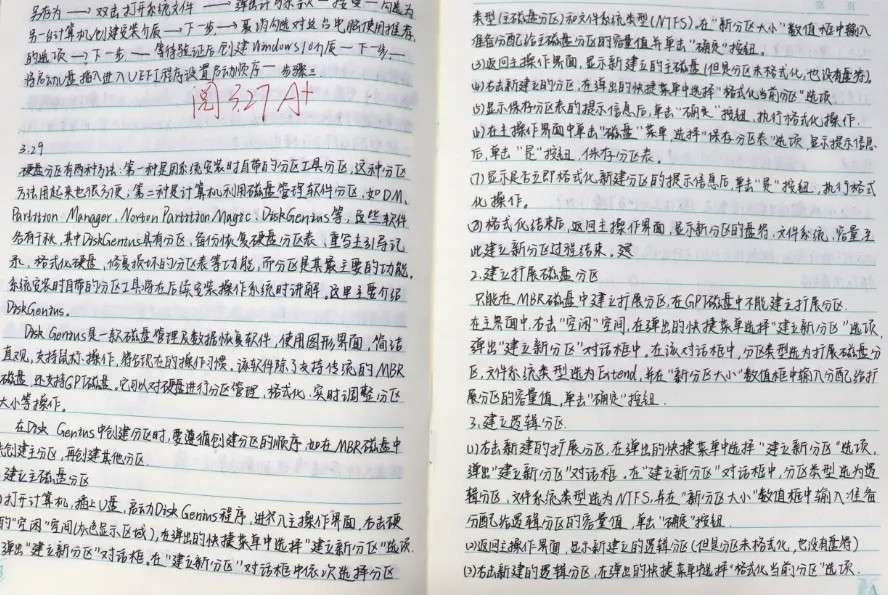 另存为 → 双击打开系统文件 → 弹出许可条款 → 接受 → 勾选为
另一台计算机创建安装介质 → 下一步 → 勾选对这台电脑使用推荐
的选项 → 下一步 → 等待验证后创建Windows10介质 → 下一步 →
将启动U盘插入进入UEFI程序设置启动顺序 → 步骤三
阅 3.27 A+
3.29
硬盘分区有两种方法:第一种是用系统安装时自带的分区工具分区,这种分区
方法用起来也很方便,第二种是计算机利用磁盘管理软件分区,如DM、
Partition Manager、Norton Partition Magic、DiskGenius等,这些软件
各有千秋,其中DiskGenius具有分区、备份恢复硬盘分区表、重写主引导记
录、格式化硬盘、修复损坏的分区表等功能,而分区是其最主要的功能。
系统安装时自带的分区工具将在后续安装操作系统时讲解,这里主要介绍
DiskGenius。
Disk Genius是一款磁盘管理及数据恢复软件,使用图形界面,简洁
直观,支持鼠标操作,符合现在的操作习惯。该软件除了支持传统的MBR
磁盘,还支持GPT磁盘。它可以对硬盘进行分区管理、格式化、实时调整分区
大小等操作。
在Disk Genius中创建分区时,要遵循创建分区的顺序,如在MBR磁盘中
先创建主分区,再创建其他分区.
建立主磁盘分区
)打开计算机,插上U盘,启动Disk Genius程序,进入主操作界面,右击硬
的"空闲"空间(灰色显示区域),在弹出的快捷菜单中选择"建立新分区"选项.
弹出"建立新分区"对话框.在"建立新分区"对话框中依次选择分区
类型(主磁盘分区)和文件系统类型(NTFS).在"新分区大小"数值框中输入
准备分配给主磁盘分区的容量值并单击"确定"按钮.
(3)返回主操作界面,显示新建立的主磁盘(但是分区未格式化,也没有盘符).
(4)右击新建立的分区,在弹出的快捷菜单中选择"格式化当前分区"选项
(5)显示保存分区表的提示信息后,单击"确定"按钮,执行格式化操作.
(6)在主操作界面中单击"磁盘"菜单,选择"保存分区表"选项,显示提示信息
后,单击"是"按钮,保存分区表。
(7)显示是否立即格式化新建分区的提示信息后,单击"是"按钮,执行格式
化操作。
(8)格式化结束后,返回主操作界面,显示新分区的盘符、文件系统、容量,至
此建立新分区过程结束。
2.建立扩展磁盘分区
只能在MBR磁盘中建立扩展分区,在GPT磁盘中不能建立扩展分区.
在主界面中,右击"空闲"空间,在弹出的快捷菜单选择"建立新分区"选项,
弹出"建立新分区"对话框中.在该对话框中,分区类型选为扩展磁盘分
区,文件系统类型选为Extend,并在"新分区大小"数值框中输入分配给扩
展分区的容量值,单击"确定"按钮.
3.建立逻辑分区
(1)右击新建的扩展分区,在弹出的快捷菜单中选择"建立新分区"选项,
弹出"建立新分区"对话框.在"建立新分区"对话框中,分区类型选为逻
辑分区,文件系统类型选为NTFS,并在"新分区大小"数值框中输入准备
分配给逻辑分区的容量值,单击"确定"按钮.
(2)返回主操作界面,显示新建立的逻辑分区(但是分区未格式化,也没有盘符)
(3)右击新建的逻辑分区,在弹出的快捷菜单中选择"格式化当前分区"选项.